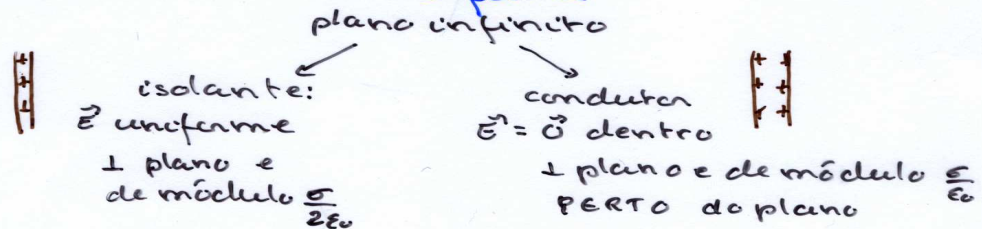 plano infinito
isolante:
E⃗ uniforme
⊥ plano e
de módulo σ/2ε₀
condutor
E⃗ = 0⃗ dentro
⊥ plano e de módulo σ/ε₀
PERTO do plano
+
+
+
+ +
+ +
+ +